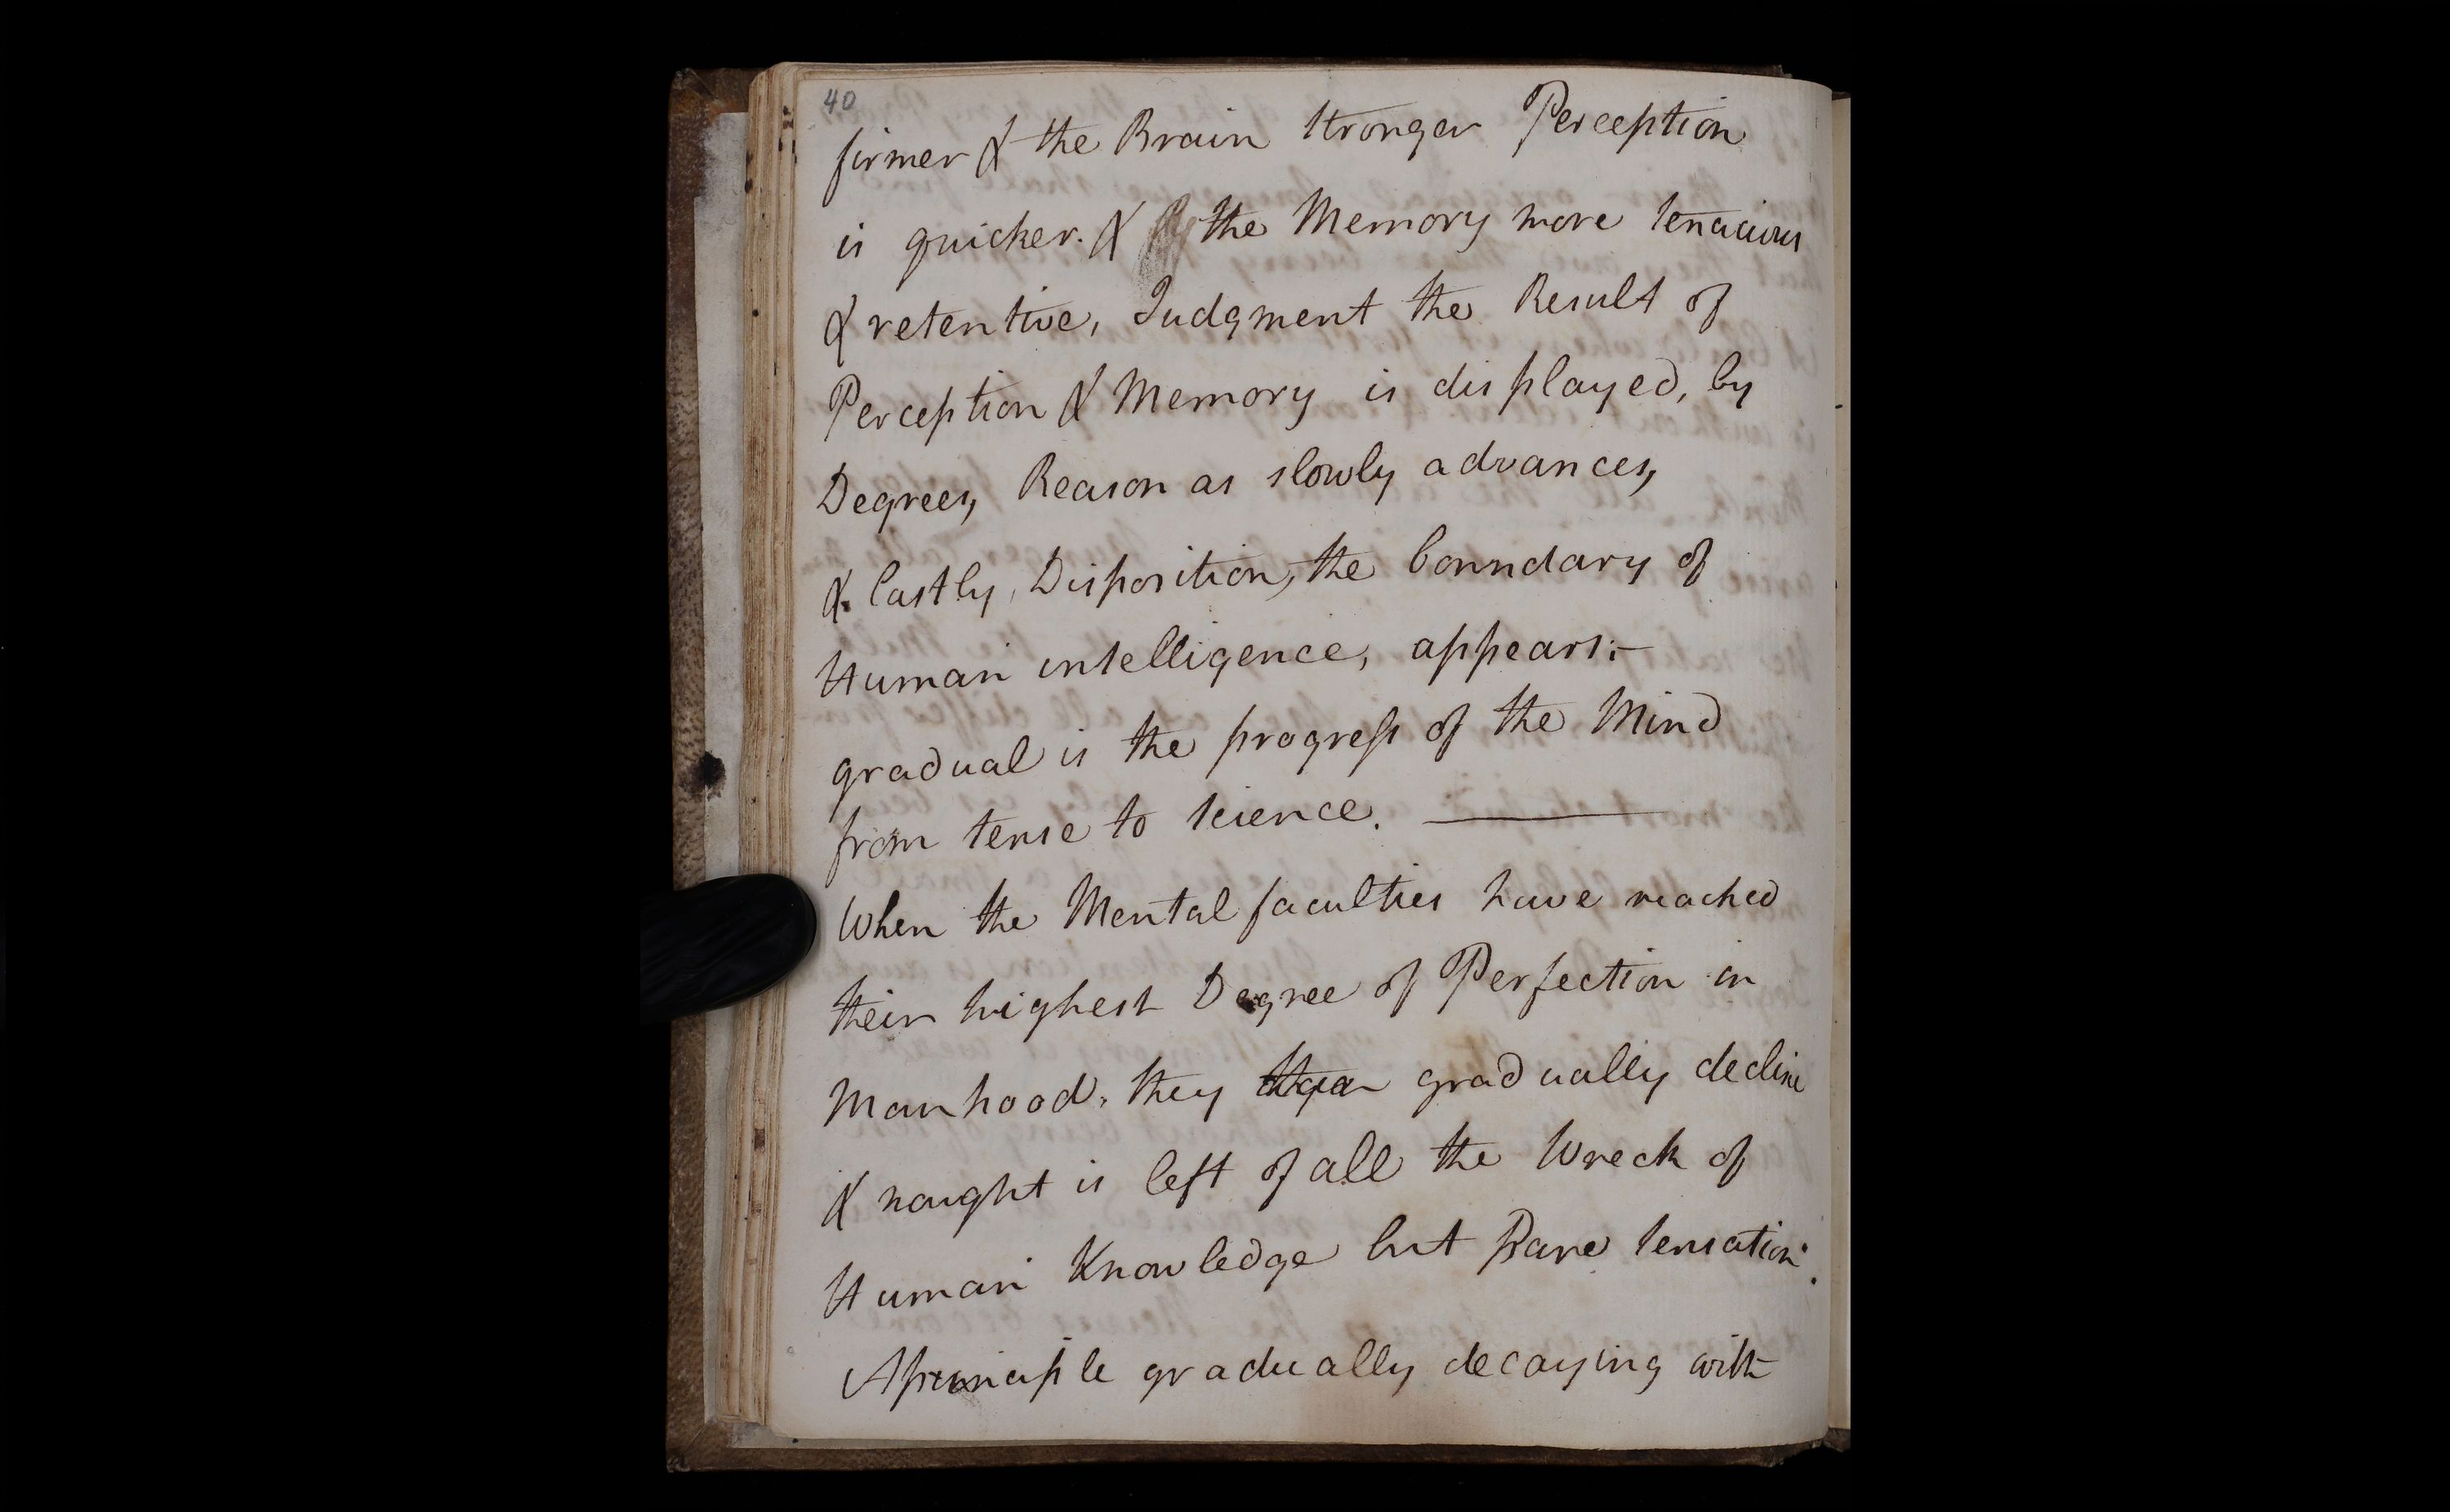 40
firmer & the Brain Stronger Perception
is quicker. & the Memory more tenacious
& retentive, Judgment the Result of
Perception & Memory is displayed, by
Degrees, Reason as slowly advances,
& lastly, Disposition, the boundary of
Human intelligence, appears:-
gradual is the progress of the Mind
from sense to science.
When the Mental faculties have reached
their highest Degree of Perfection in
Manhood, they gradually decline
& nought is left of all the Wreck of
Human Knowledge but Bare Sensation.
A principle gradually decaying with